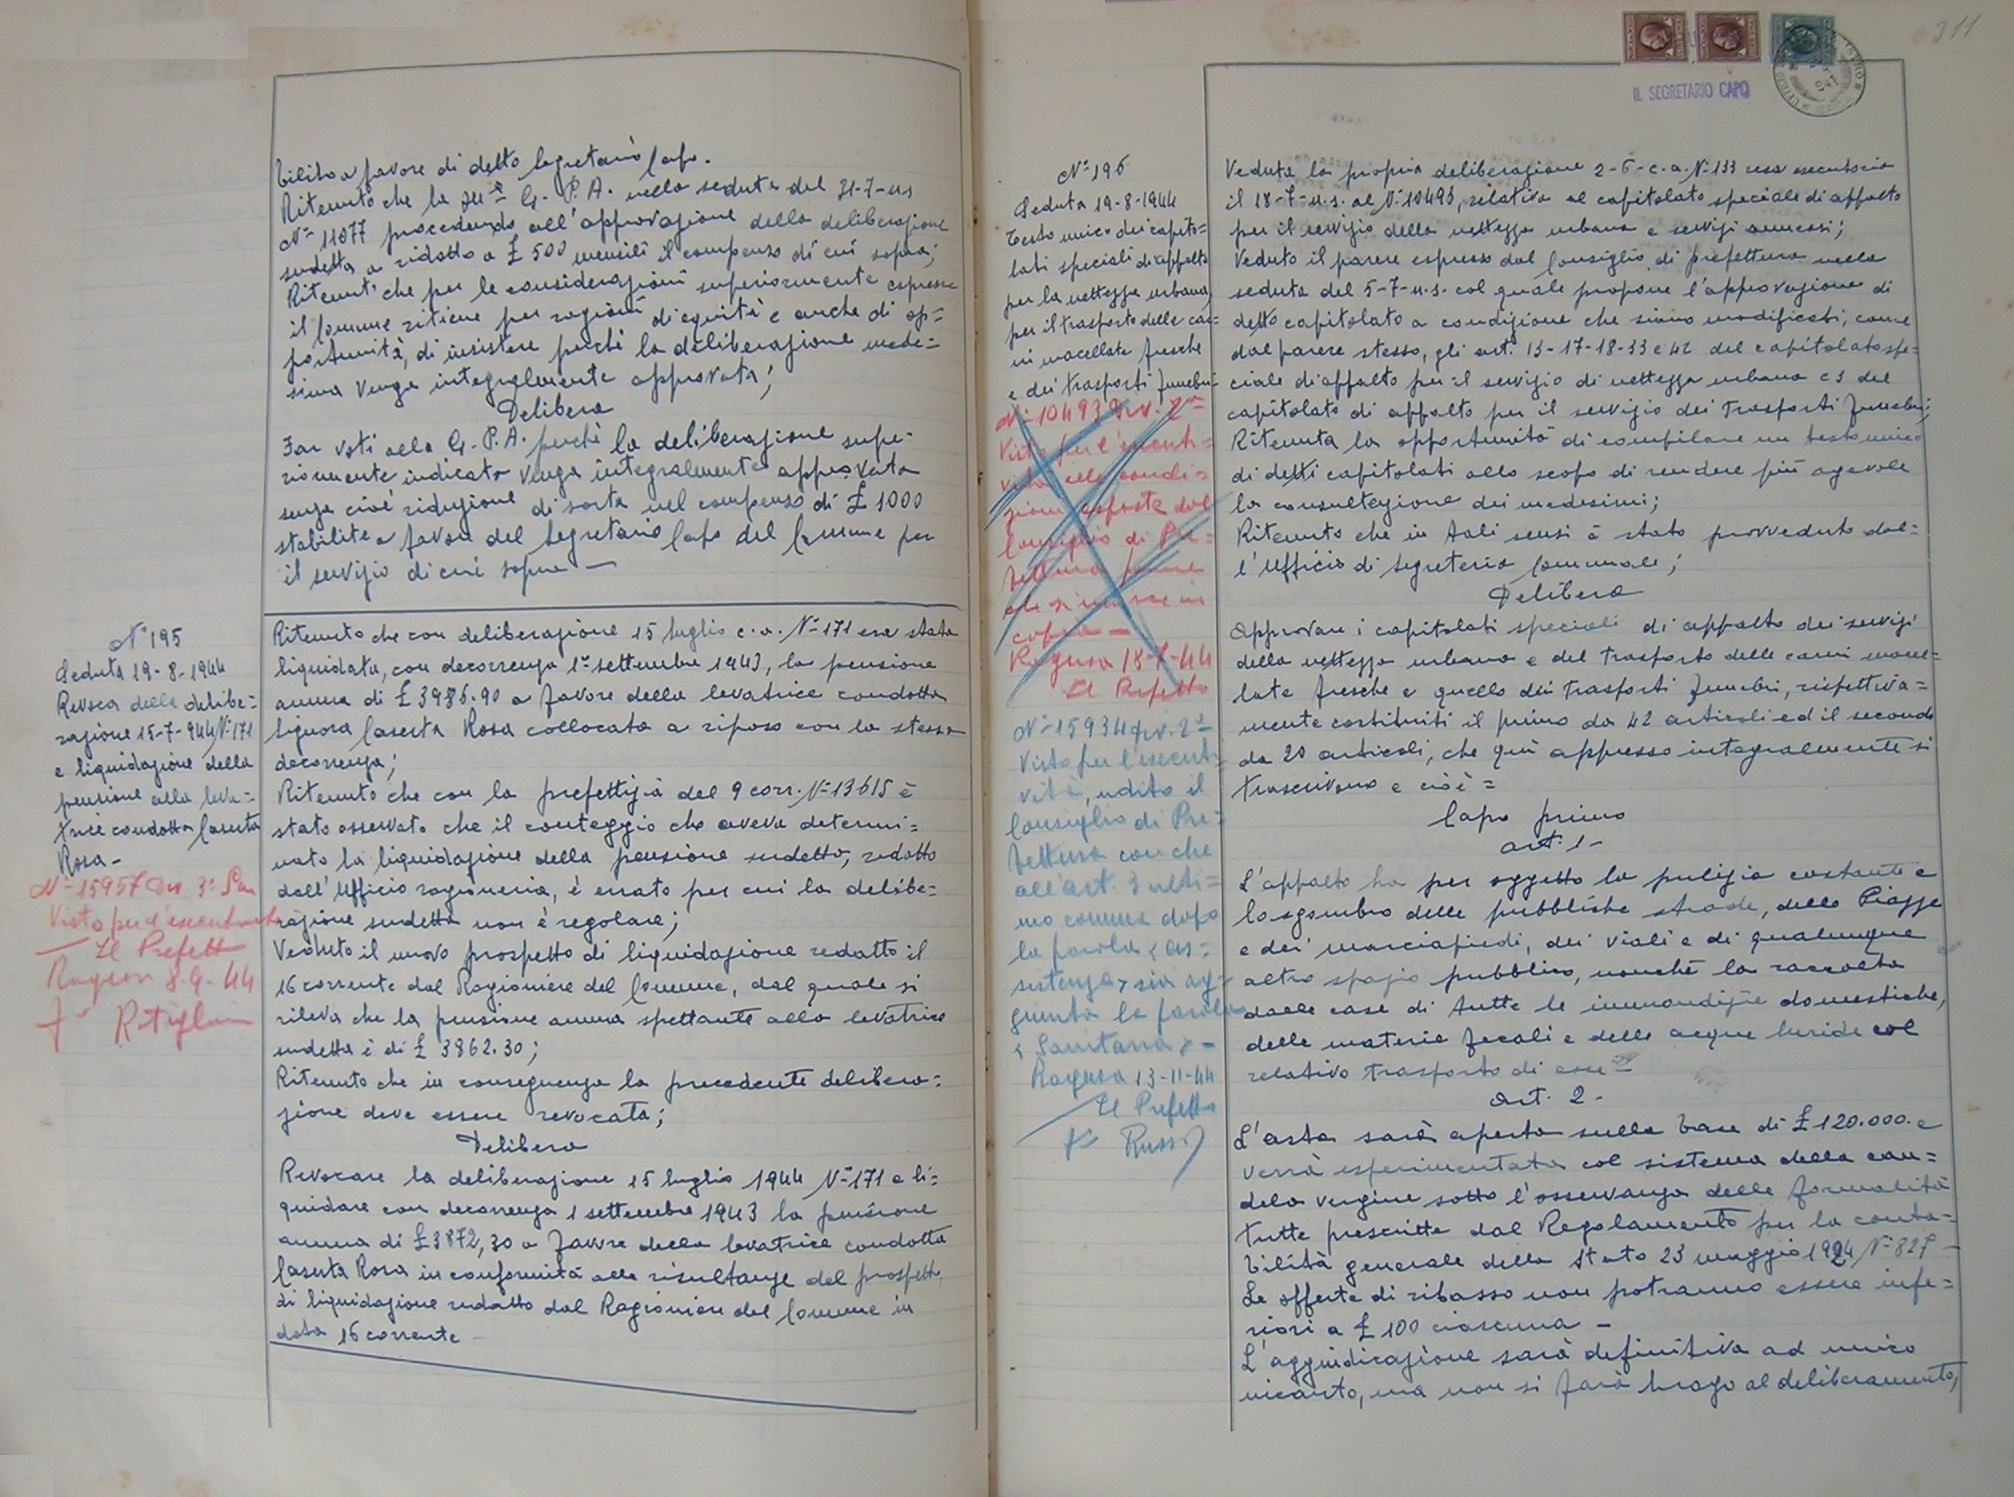 bilito a favore di detto Segretario Capo.
Ritenuto che la G. P. A. nella seduta del 31-7-u.s.
N° 11077 procedendo all'approvazione della deliberazione
sudetta a ridotto a £ 500 mensili il compenso di cui sopra;
Ritenut' che per le considerazioni superiormente espresse
il Comune ritiene per ragioni di equità e anche di op=
portunità, di insistere perchè la deliberazione mede=
sima venga integralmente approvata;
Delibera
Far voti alla G. P. A. perchè la deliberazione supe-
riormente indicata venga integralmente approvata
senza cioè riduzione di sorta nel compenso di £ 1000
stabilito a favore del Segretario Capo del Comune per
il servizio di cui sopra —
N° 195
Seduta 19-8-1944
Revoca della delibe=
razione 15-7-944 N. 171
e liquidazione della
pensione alla leva=
trice condotta Caserta
Rosa -
N° 15957 Div 3ª San
Visto per l'esecutività
Il Prefetto
Ragusa 8-9-44
Ritenuto che con deliberazione 15 luglio c.a. N° 171 era stata
liquidata, con decorrenza 1° settembre 1943, la pensione
annua di £ 3986.90 a favore della levatrice condotta
Signora Caserta Rosa collocata a riposo con la stessa
decorrenza;
Ritenuto che con la prefettizia del 9 corr. N° 13615 è
stato osservato che il conteggio che aveva determi=
nato la liquidazione della pensione sudetta, redatto
dall'Ufficio ragioneria, è errato per cui la delibe=
razione sudetta non è regolare;
Veduto il nuovo prospetto di liquidazione redatto il
16 corrente dal Ragioniere del Comune, dal quale si
rileva che la pensione annua spettante alla levatrice
sudetta è di £ 3862.30;
Ritenuto che in conseguenza la precedente delibera=
zione deve essere revocata;
Delibera
Revocare la deliberazione 15 luglio 1944 N° 171 e li=
quidare con decorrenza 1 settembre 1943 la pensione
annua di £ 3872,30 a favore della levatrice condotta
Caserta Rosa in conformità alle risultanze del prospetto
di liquidazione redatto dal Ragioniere del Comune in
data 16 corrente
311
IL SEGRETARIO CAPO
N° 196
Seduta 19-8-1944
Testo unico dei capito=
lati speciali di appalto
per la nettezza urbana,
per il trasporto delle car=
ni macellate fresche
e dei trasporti funebri
N° 10493 Div. 2ª
Visto per l'esecuti=
vità alle condi=
zioni esposte dal
Consiglio di Pre=
fettura
che si unisce in
copia —
Ragusa 18-7-44
Il Prefetto
N° 15934 Div. 2ª
Visto per l'esecuti=
vità, udito il
Consiglio di Pre=
fettura con che
all'art. 3 ulti=
mo comma dopo
la parola < as=
sistenza > sia ag=
giunta la parola
< Sanitaria > -
Ragusa 13-11-44
Il Prefetto
f° Russo
Veduta la propria deliberazione 2-6-c.a. N° 133 resa esecutoria
il 18-7-u.s. al N° 10493, relativa al capitolato speciale di appalto
per il servizio della nettezza urbana e servizi annessi;
Veduto il parere espresso dal Consiglio di prefettura nella
seduta del 5-7-u.s. col quale propone l'approvazione di
detto capitolato a condizione che siano modificati, come
dal parere stesso, gli art. 13-17-18-33 e 42 del capitolato spe=
ciale di appalto per il servizio di nettezza urbana e 3 del
capitolato di appalto per il servizio dei trasporti funebri;
Ritenuta la opportunità di compilare un testo unico
di detti capitolati allo scopo di rendere più agevole
la consultazione dei medesimi;
Ritenuto che in tali sensi è stato provveduto dal=
l'Ufficio di Segreteria Comunale;
Delibera
Approvare i capitolati speciali di appalto dei servizi
della nettezza urbana e del trasporto delle carni macel=
late fresche e quello dei trasporti funebri, rispettiva=
mente costituiti il primo da 42 articoli ed il secondo
da 20 articoli, che qui appresso integralmente si
trascrivono e cioè =
Capo primo
art. 1 -
L'appalto ha per oggetto la pulizia costante e
lo sgombro delle pubbliche strade, delle Piazze
e dei marciapiedi, dei viali e di qualunque
altro spazio pubblico, nonchè la raccolta
dalle case di tutte le immondizie domestiche,
delle materie fecali e delle acque luride col
relativo trasporto di esse =
Art. 2 -
L'asta sarà aperta sulla base di £ 120.000. e
verrà esperimentata col sistema della can=
dela vergine sotto l'osservanza delle formalità
tutte prescritte dal Regolamento per la conta=
bilità generale dello Stato 23 maggio 1924 N° 827 -
Le offerte di ribasso non potranno essere infe=
riori a £ 100 ciascuna -
L'aggiudicazione sarà definitiva ad unico
incanto, ma non si farà luogo al deliberamento,